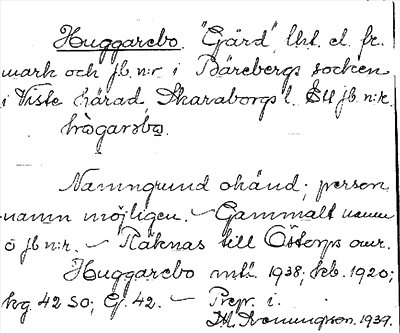 Huggarebo. "Gård", lht. el. fr.
mark och jb. n:r i Bärebergs socken
i Viste härad, Skaraborgs l. Ett jb. n:r.
hὸgarsbo.
Namngrund okänd; person
namn möjligen. – Gammalt namn
å jb n:r. – Räknas till Östorps omr.
Huggarebo mtl. 1938; kb. 1920;
kg. 42 SO; Gj. 42. – Prepr. i.